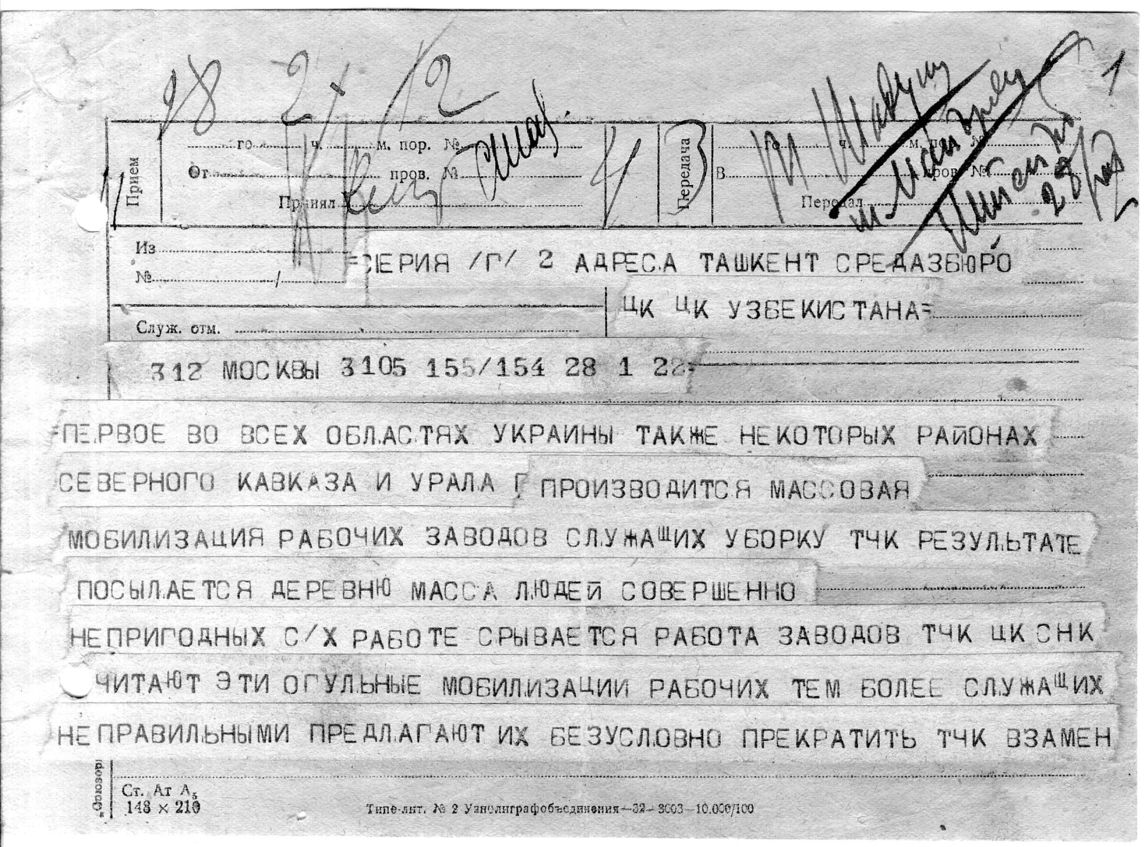 28 2/X 12
1
Прием
го ч. м. пор. №
От пров. №
Принял
4
Передача
3
го ч. м. пор. №
В пров. №
Передал
28/
Из
№ /
Служ. отм.
=СЕРИЯ /Г/ 2 АДРЕСА ТАШКЕНТ СРЕДАЗБЮРО
ЦК ЦК УЗБЕКИСТАНА=
312 МОСКВЫ 3105 155/154 28 1 22=
=ПЕРВОЕ ВО ВСЕХ ОБЛАСТЯХ УКРАИНЫ ТАКЖЕ НЕКОТОРЫХ РАЙОНАХ
СЕВЕРНОГО КАВКАЗА И УРАЛА ПРОИЗВОДИТСЯ МАССОВАЯ
МОБИЛИЗАЦИЯ РАБОЧИХ ЗАВОДОВ СЛУЖАЩИХ УБОРКУ ТЧК РЕЗУЛЬТАТЕ
ПОСЫЛАЕТСЯ ДЕРЕВНЮ МАССА ЛЮДЕЙ СОВЕРШЕННО
НЕПРИГОДНЫХ С/Х РАБОТЕ СРЫВАЕТСЯ РАБОТА ЗАВОДОВ ТЧК ЦК СНК
ЧИТАЮТ ЭТИ ОГУЛЬНЫЕ МОБИЛИЗАЦИИ РАБОЧИХ ТЕМ БОЛЕЕ СЛУЖАЩИХ
НЕПРАВИЛЬНЫМИ ПРЕДЛАГАЮТ ИХ БЕЗУСЛОВНО ПРЕКРАТИТЬ ТЧК ВЗАМЕН
Ст. Ат А₅
148 × 210
Типо-лит. № 2 Узполиграфобъединения—32—3003—10.000/100